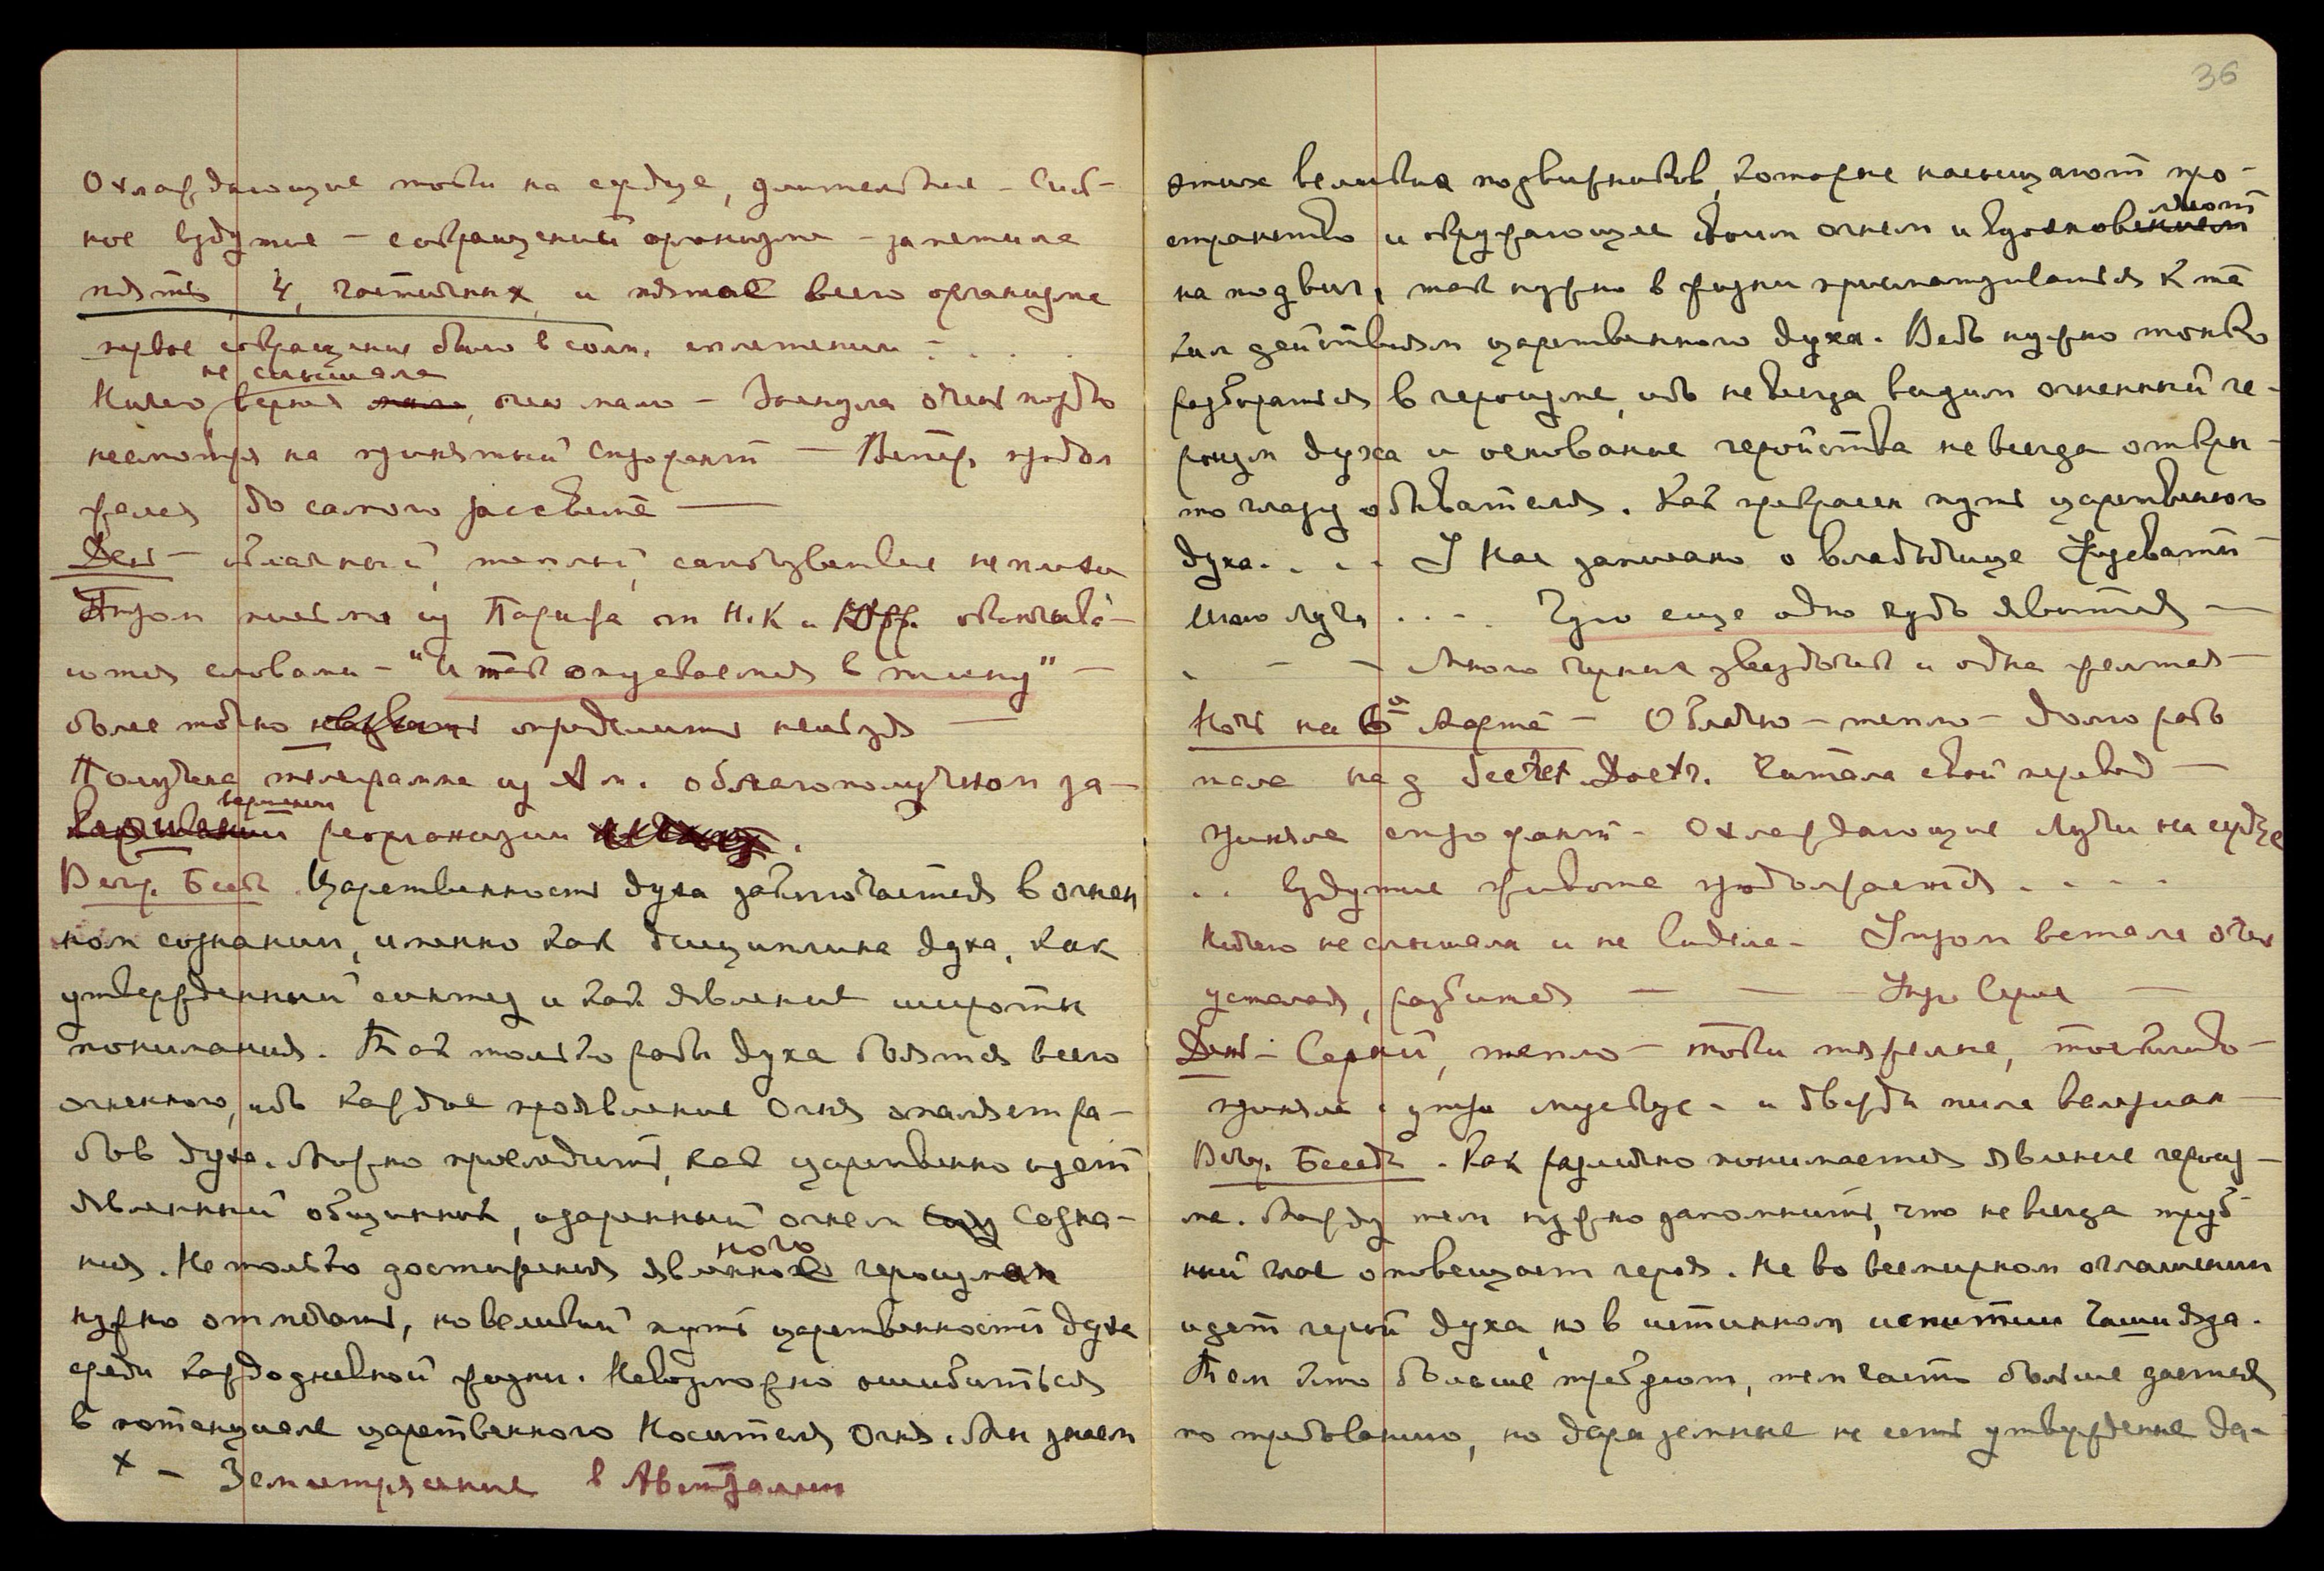 Охлаждающие токи на сердце, длительные – Силь-
ное вздутие – сокращений организма – заметила
пять, 4, частичных и пятое всего организма
первое сокращение было в солн. сплетении – . . .
не слышала
Ничего, верней, очень мало – Заснула очень поздно
несмотря на принятый строфант – Ветер продол
жался до самого рассвета —
День – облачный, теплый, самочувствие неплохое
Утром письма из Парижа от Н.К. и оканчива-
ются словами – "И так опускаемся в тьму" –
более точно определить нельзя —
Получена телеграмма из Ам. о благополучном за-
вершении
реорганизации .
Веч. Бесед. Царственность духа заключается в огнен
ном сознании, именно как дисциплина духа, как
утвержденный синтез и как явление широты
понимания. Так только рабы духа боятся всего
огненного, ибо каждое проявление Огня опаляет ра-
бов духа. Можно проследить, как царственно идет
явленный общинник, одаренный огнем Созна-
ния. Не только достижения явленного героизма
нужно отмечать, но великий путь царственности духа
среди каждодневной жизни. Невозможно ошибиться
в потенциале царственного Носителя Огня. Мы знаем
x – Землетрясение в Австралии
36
этих великих подвижников, которые насыщают про-
странство и окружающее своим огнем и вдохновляют
на подвиг, так нужно в жизни присматриваться к та
ким действиям царственного духа. Ведь нужно тонко
разбираться в героизме, ибо не всегда видим огненный ге-
роизм духа и основание геройства не всегда откры-
то глазу обывателя. Как прекрасен путь царственного
духа. . . . У Нас записано о владычице
Луча . . . . Чудо еще одно чудо явится —
. – – Много черных звездочек и одна желтая –
Ночь на 6ое Марта – Облачно – тепло – долго рабо
тала над Secret Doctr. Читала свой перевод —
приняла строфант – Охлаждающие Лучи на сердце
. . вздутие живота продолжается . . . .
Ничего не слышала и не видела – Утром встала очень
усталая, разбитая — — Утро Серое —
День – Серый, тепло – токи тяжелые, тоскливо –
приняла утром мускус – и дважды пила валериан –
Веч. Беседа. Как различно понимается явление героиз-
ма. Между тем нужно запомнить, что не всегда труб
ный глас оповещает героя. Не во всемирном оглашении
идет герой духа, но в истинном испитии Чаши яда.
Тем кто больше требуют, тем часто больше дается
по требованию, но дары земные не есть утверждение да-